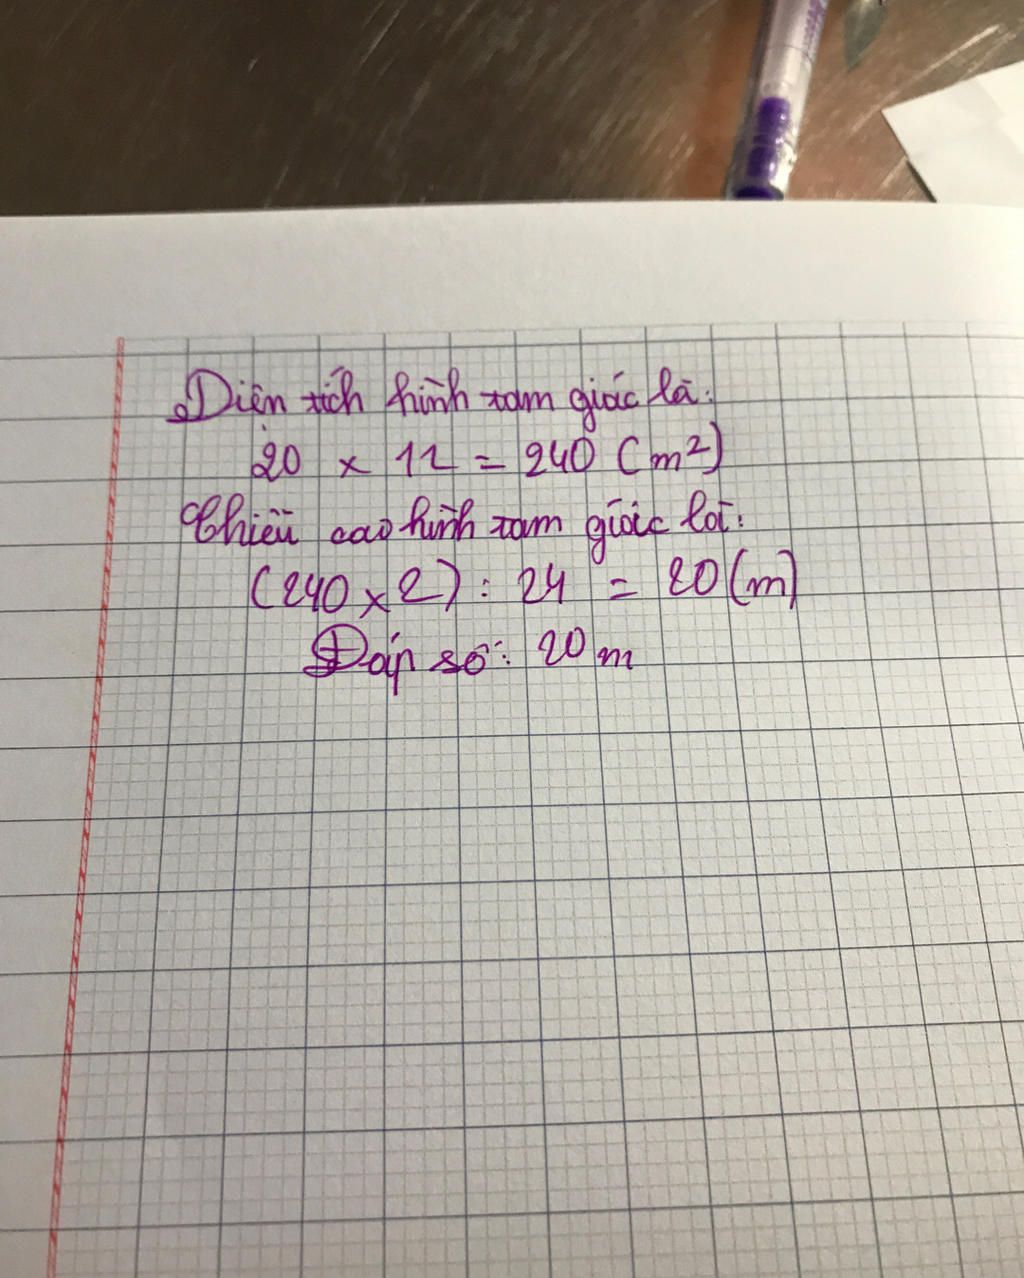 Diện tích hình tam giác là:
20 x 12 = 240 (m²)
Chiều cao hình tam giác là:
(240 x 2) : 24 = 20 (m)
Đáp số: 20 m